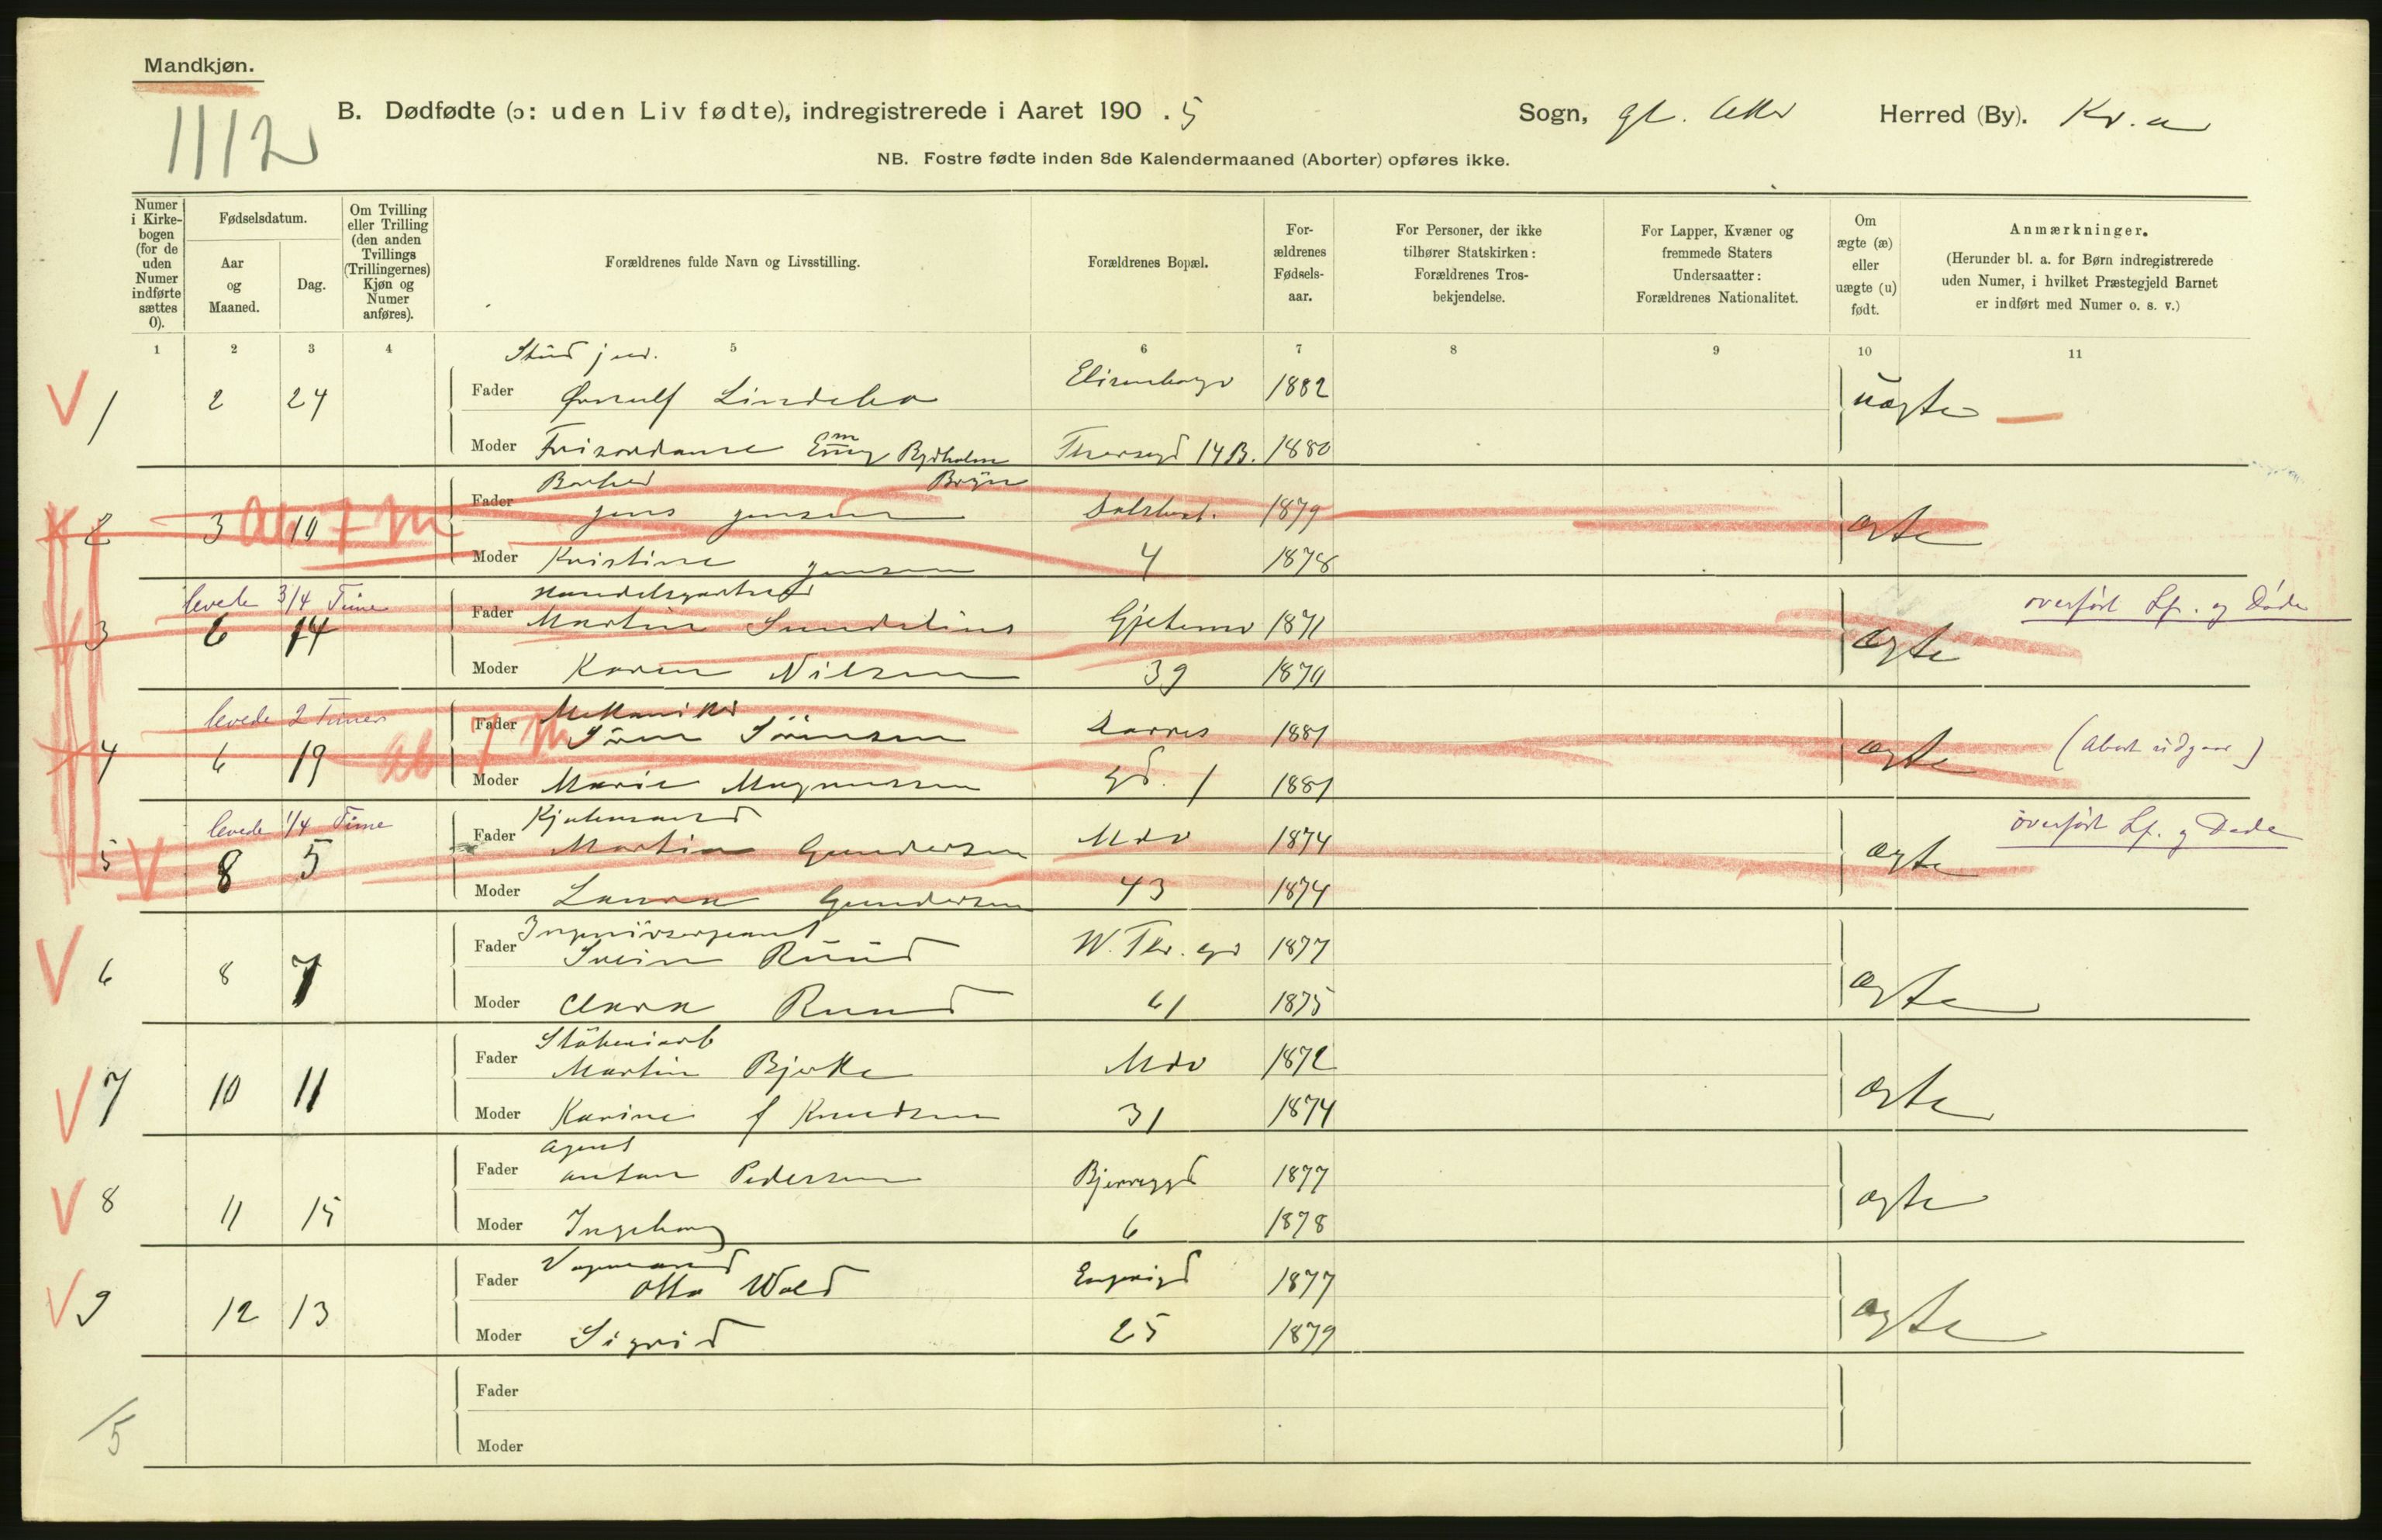 Mandkjøn.
1112
B. Dødfødte (ɔ: uden Liv fødte), indregistrerede i Aaret 190 . 5 Sogn, gl. Aker Herred (By). Kr.a
NB. Fostre fødte inden 8de Kalendermaaned (Aborter) opføres ikke.
Numer i Kirkebogen (for de uden Numer indførte sættes 0).
Fødselsdatum.
Aar og Maaned.
Dag.
Om Tvilling eller Trilling (den anden Tvillings (Trillingernes) Kjøn og Numer anføres).
Forældrenes fulde Navn og Livsstilling.
Forældrenes Bopæl.
Forældrenes Fødselsaar.
For Personer, der ikke tilhører Statskirken: Forældrenes Trosbekjendelse.
For Lapper, Kvæner og fremmede Staters Undersaatter: Forældrenes Nationalitet.
Om ægte (æ) eller uægte (u) født.
Anmærkninger.
(Herunder bl. a. for Børn indregistrerede uden Numer, i hvilket Præstegjeld Barnet er indført med Numer o. s. v.)
1 2 3 4 5 6 7 8 9 10 11
Stud jur.
V 1 2 24 Fader Ørnulf Lindebo 1882 uægte
Moder Frisørdame Emmy Bydholm 14 B. 1880
2 3 Ab 7 M Fader Jens Jensen 1879 ægte
Moder Kristine Jensen 4 1878
levede 3/4 Time overført Lf. og Døde
V 3 6 14 Fader Martin Sundelius Gjetemv 1871 ægte
Moder Karen Nilsen 39
levede 2 Timer Mekaniker
4 6 19 Ab 7 M Fader Sören Sörensen Darres 1881 ægte (Abort udgaar)
Moder Marie Magnussen gd. 1 1881
levede 1/4 Time overført Lf. og Døde
5 V 8 5 Fader Martin Gundersen Mdv 1874 ægte
Moder Laura Gundersen 43 1874
V 6 8 7 Fader Svein Ruud 1877 ægte
Moder Clara Ruud 61 1875
Støberiarb
V 7 10 11 Fader Martin Bjerke Mdv 1872 ægte
Moder Karine f Knudsen 31 1874
Agent
V 8 11 15 Fader Anton Pedersen Bjerreggd 1877 ægte
Moder Ingeborg 6 1878
Vognmand
V 9 12 13 Fader Otto Wold 1877 ægte
Moder Sigrid 25 1879
Fader
Moder
/5